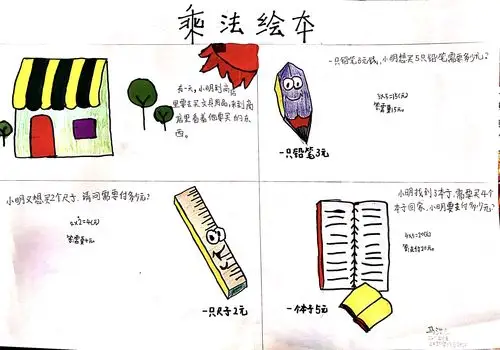 乘法绘本
有一天,小明到商店
里要去买文具用品,来到商
店里看着他要买的东
西。
一只铅笔3元钱,小明想买5只铅笔需要多少元?
3x5=15(元)
答需要15元。
一只铅笔3元
小明又想买2个尺子,请问需要付多少元?
2x2=4(元)
答需要4元。
一只尺子2元
小明找到了本子,需要买4个
本子回家,小明要支付多少元?
4x5=20(元)
一个本子5元